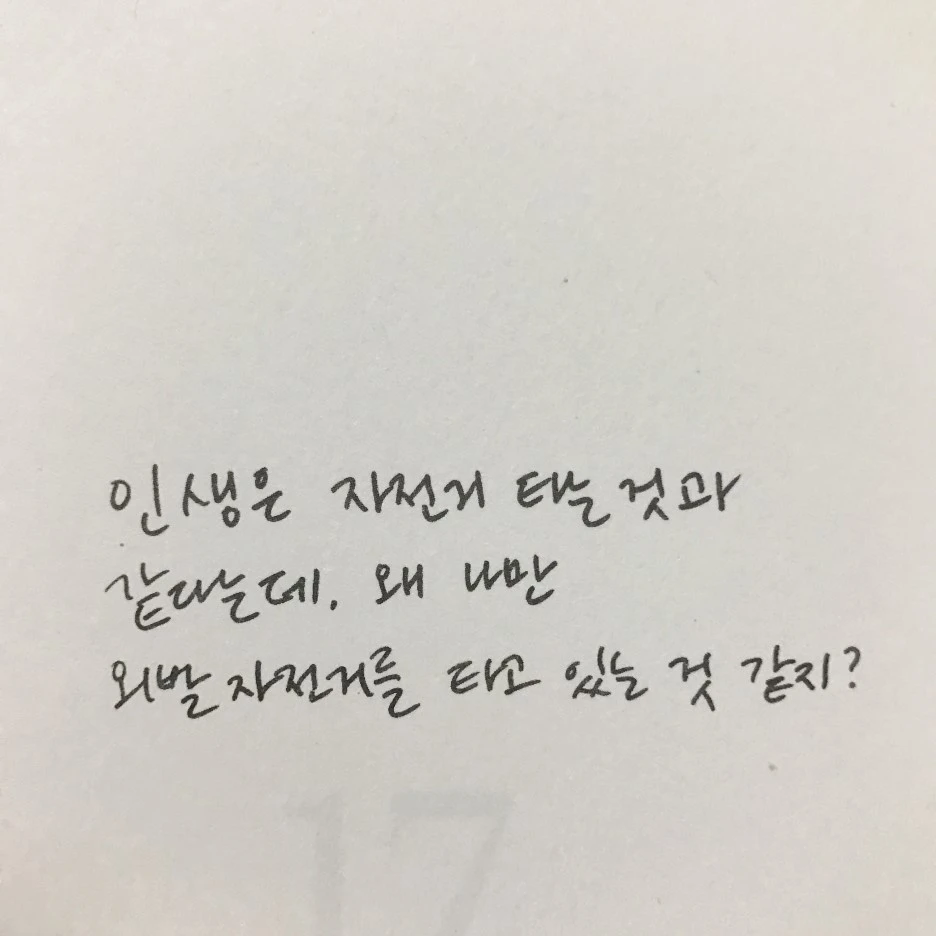 인생은 자전거 타는 것과
같다는데, 왜 나만
외발자전거를 타고 있는 것 같지?
17